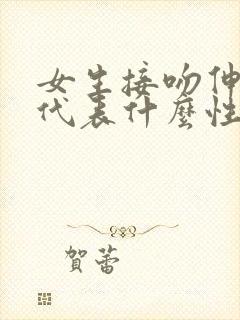 女生接吻伸
代表什麼性
賀蕾